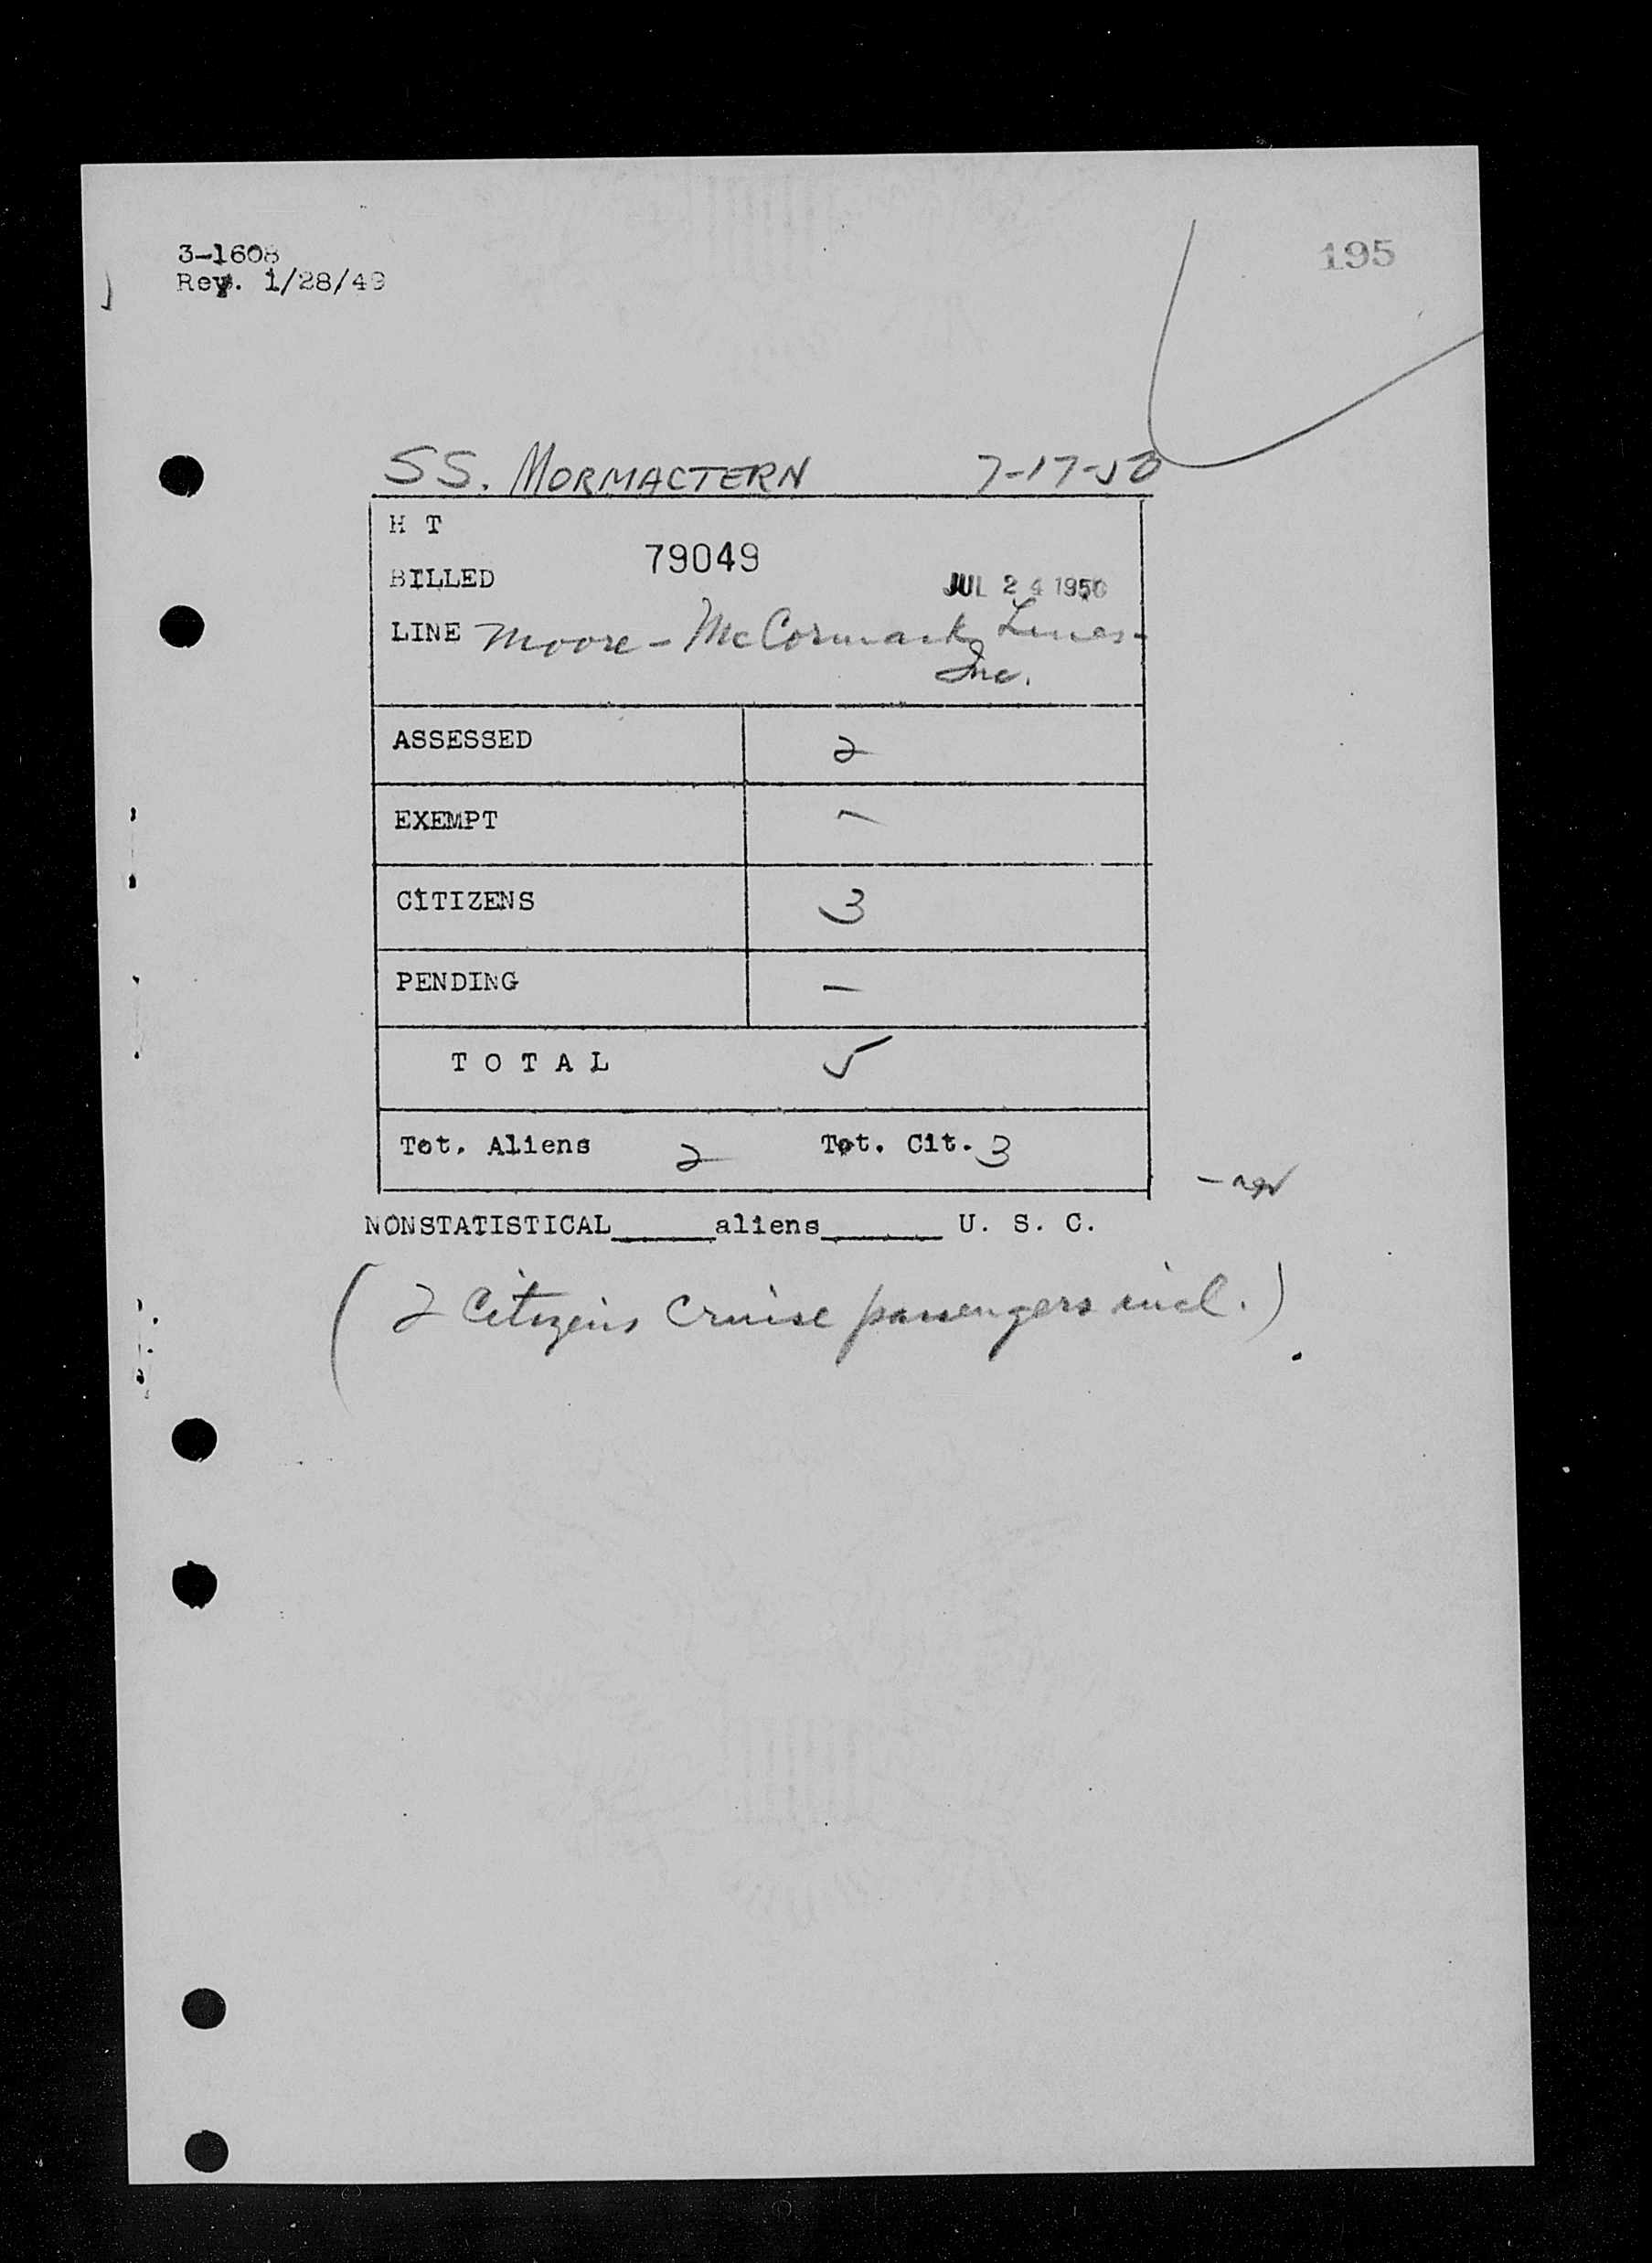 3-1608
195
Rev. 1/28/49
SS. MORMACTERN 7-17-50
H T
79049
BILLED JUL 24 1950
LINE Moore-McCormack Lines-
Inc.
ASSESSED 2
EXEMPT -
CITIZENS 3
PENDING -
T O T A L 5
Tot. Aliens 2 Tot. Cit. 3
NONSTATISTICAL_____aliens______ U. S. C.
( 2 Citizens Cruise passengers incl. )